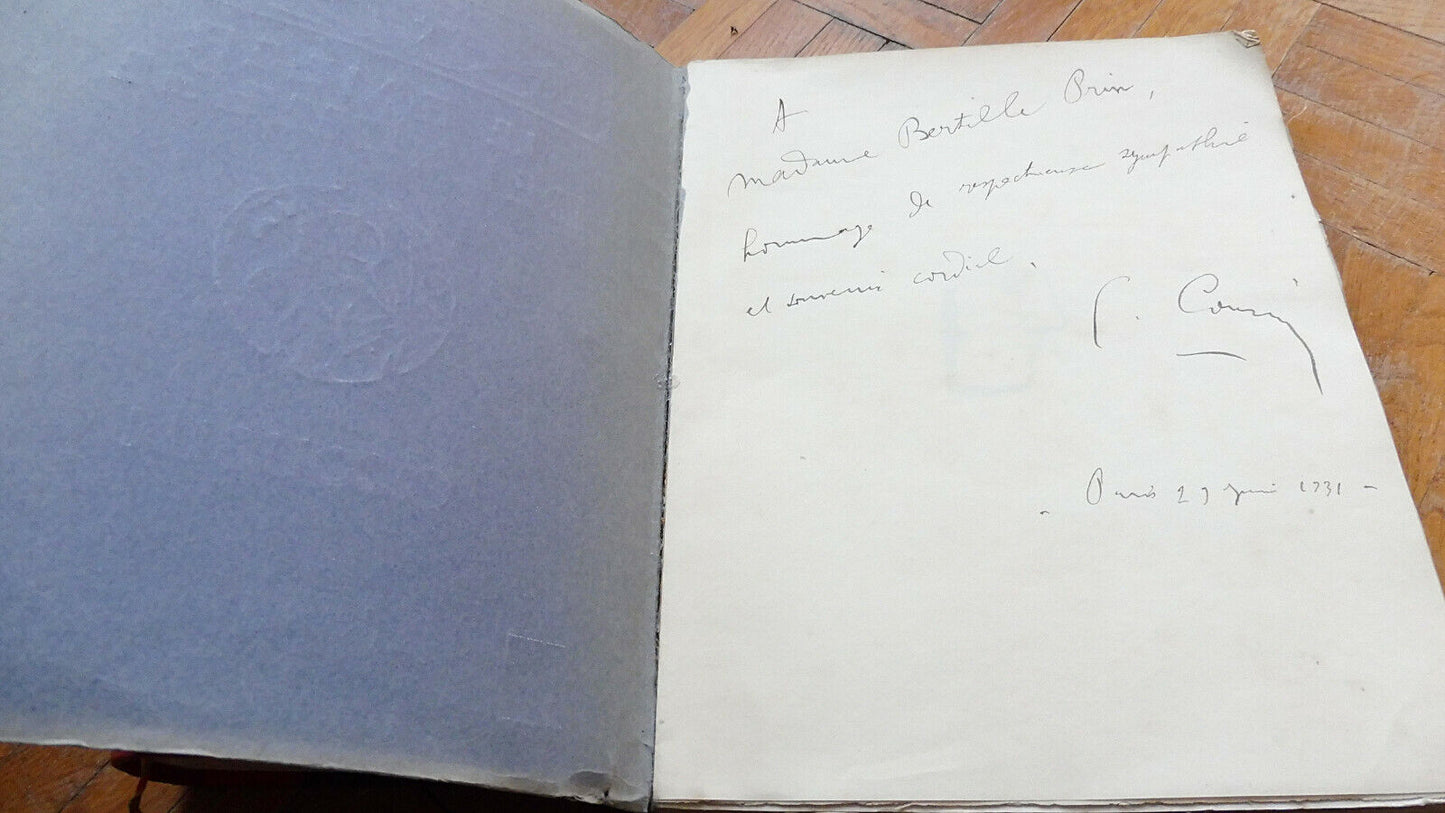 A
Madame Bertille Prin,
hommage de respectueuse sympathie
et souvenir cordial.
Cousin
Paris 29 juin 1931 -